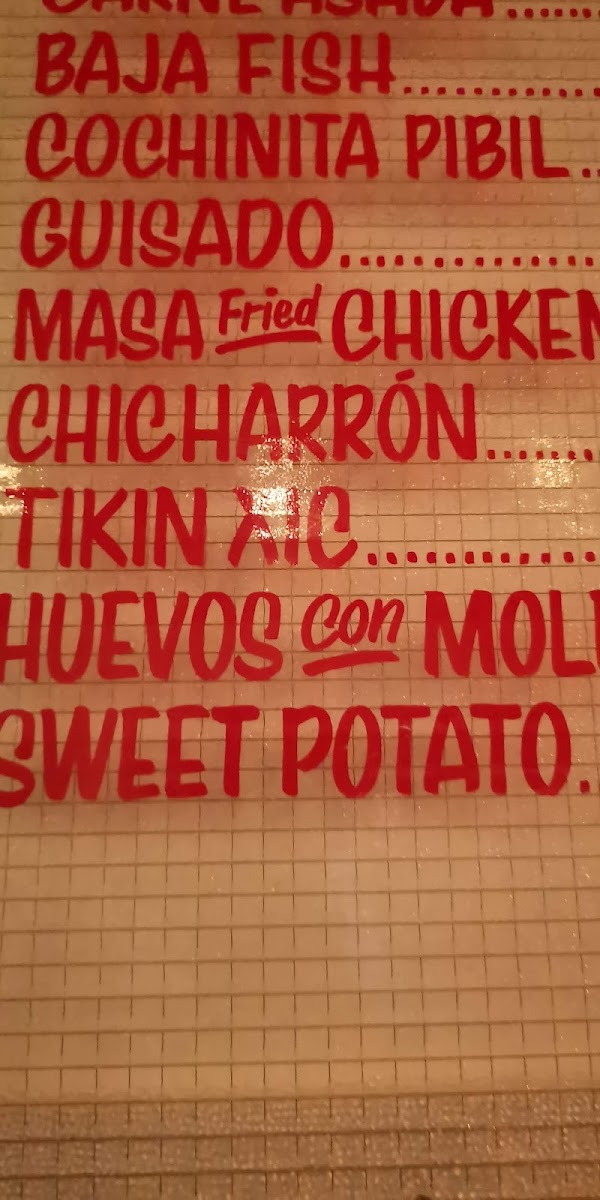 CARNE ASADA........
BAJA FISH............
COCHINITA PIBIL..
GUISADO..............
MASA Fried CHICKEN
CHICHARRÓN......
TIKIN XIC.............
HUEVOS con MOLE
SWEET POTATO..